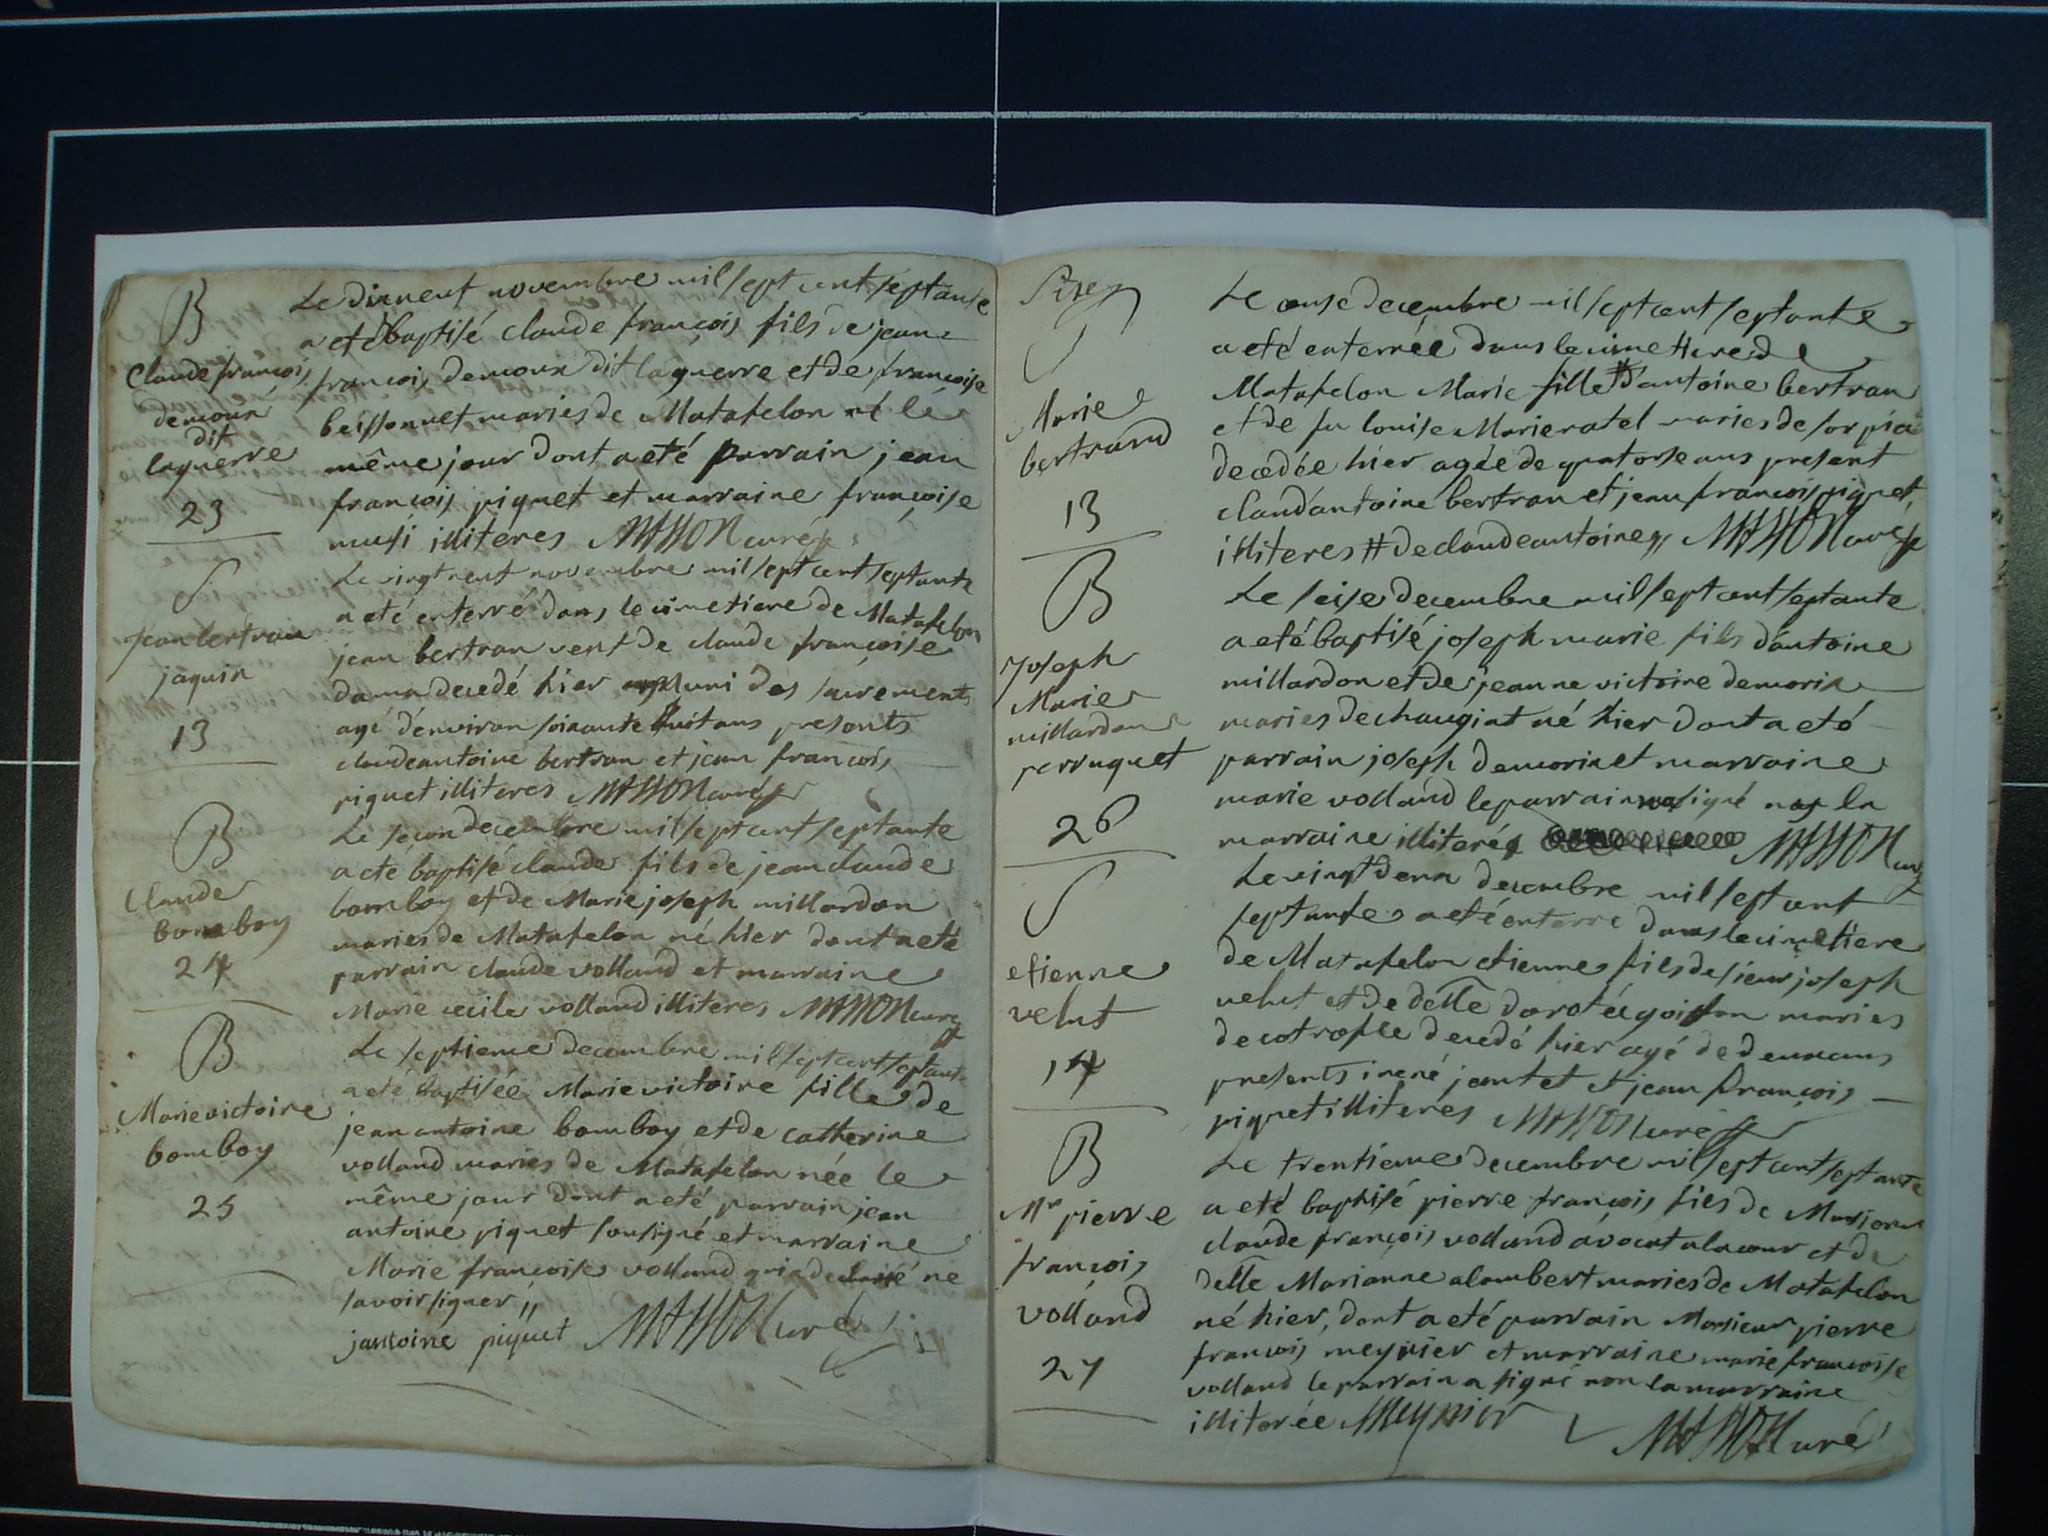 B
Claude françois
demoux
dit
laguerre
23
Le dixneuf novembre mil sept cent septante
a eté baptisé claude françois fils de jean
françois demoux dit laguerre et de françoise
beissonnet mariés de Matafelon né le
même jour dont a eté parrain jean
françois piquet et marraine françoise
illiteres MASSON curé
S
jean bertran
jaquin
13
Le vingt neuf novembre mil sept cent septante
a eté enterré dans le cimetiere de Matafelon
jean bertran veuf de claude françoise
decedé hier muni des sacrements
agé d'environ soixante huit ans presents
claudeantoine bertran et jean françois
piquet illiteres MASSON curé
B
Claude
bomboy
24
Le second decembre mil sept cent septante
a eté baptisé claude fils de jean claude
bomboy et de Marie joseph millardon
mariés de Matafelon né hier dont a eté
parrain claude volland et marraine
Marie cecile volland illiteres MASSON curé
B
Marie victoire
bomboy
25
Le septieme decembre mil sept cent septante
a eté baptisée Marie victoire fille de
jean antoine bomboy et de catherine
volland mariés de Matafelon née le
même jour dont a eté parrain jean
antoine piquet soussigné et marraine
Marie françoise volland qui a declaré ne
savoir signer //
jantoine piquet MASSON curé
S
Marie
bertrand
13
Le onse decembre mil sept cent septante
a eté enterrée dans le cimettiere de
Matafelon Marie fille # d'antoine bertran
et de fu louise Marie ratel mariés de sorpia
decedée hier agée de quatorse ans present
claud'antoine bertran et jean françois piquet
illiteres # de claudeantoine // MASSON curé
B
joseph
Marie
millardon
perruquet
26
Le seise decembre mil sept cent septante
a eté baptisé joseph marie fils d'antoine
millardon et de jeanne victoire demorin
mariés de chougiat né hier dont a eté
parrain joseph demorin et marraine
marie volland le parrain signé la
marraine illiterée MASSON curé
S
etienne
velut
14
Le vingt deux decembre mil sept cent
septante a eté enterré dans le cimetiere
de Matafelon etienne fils de sieur joseph
velut et de delle dorotée goiffon mariés
de cotrophe decedé hier agé de deux ans
presents irené jantet et jean françois
piquet illiteres MASSON curé
B
Mr pierre
françois
volland
27
Le trentieme decembre mil sept cent septante
a eté baptisé pierre françois fils de Monsieur
claude françois volland avocat a la cour et de
delle Marianne alombert mariés de Matafelon
né hier, dont a eté parrain Monsieur pierre
françois meynier et marraine marie françoise
volland le parrain a signé non la marraine
illiterée Meynier MASSON curé